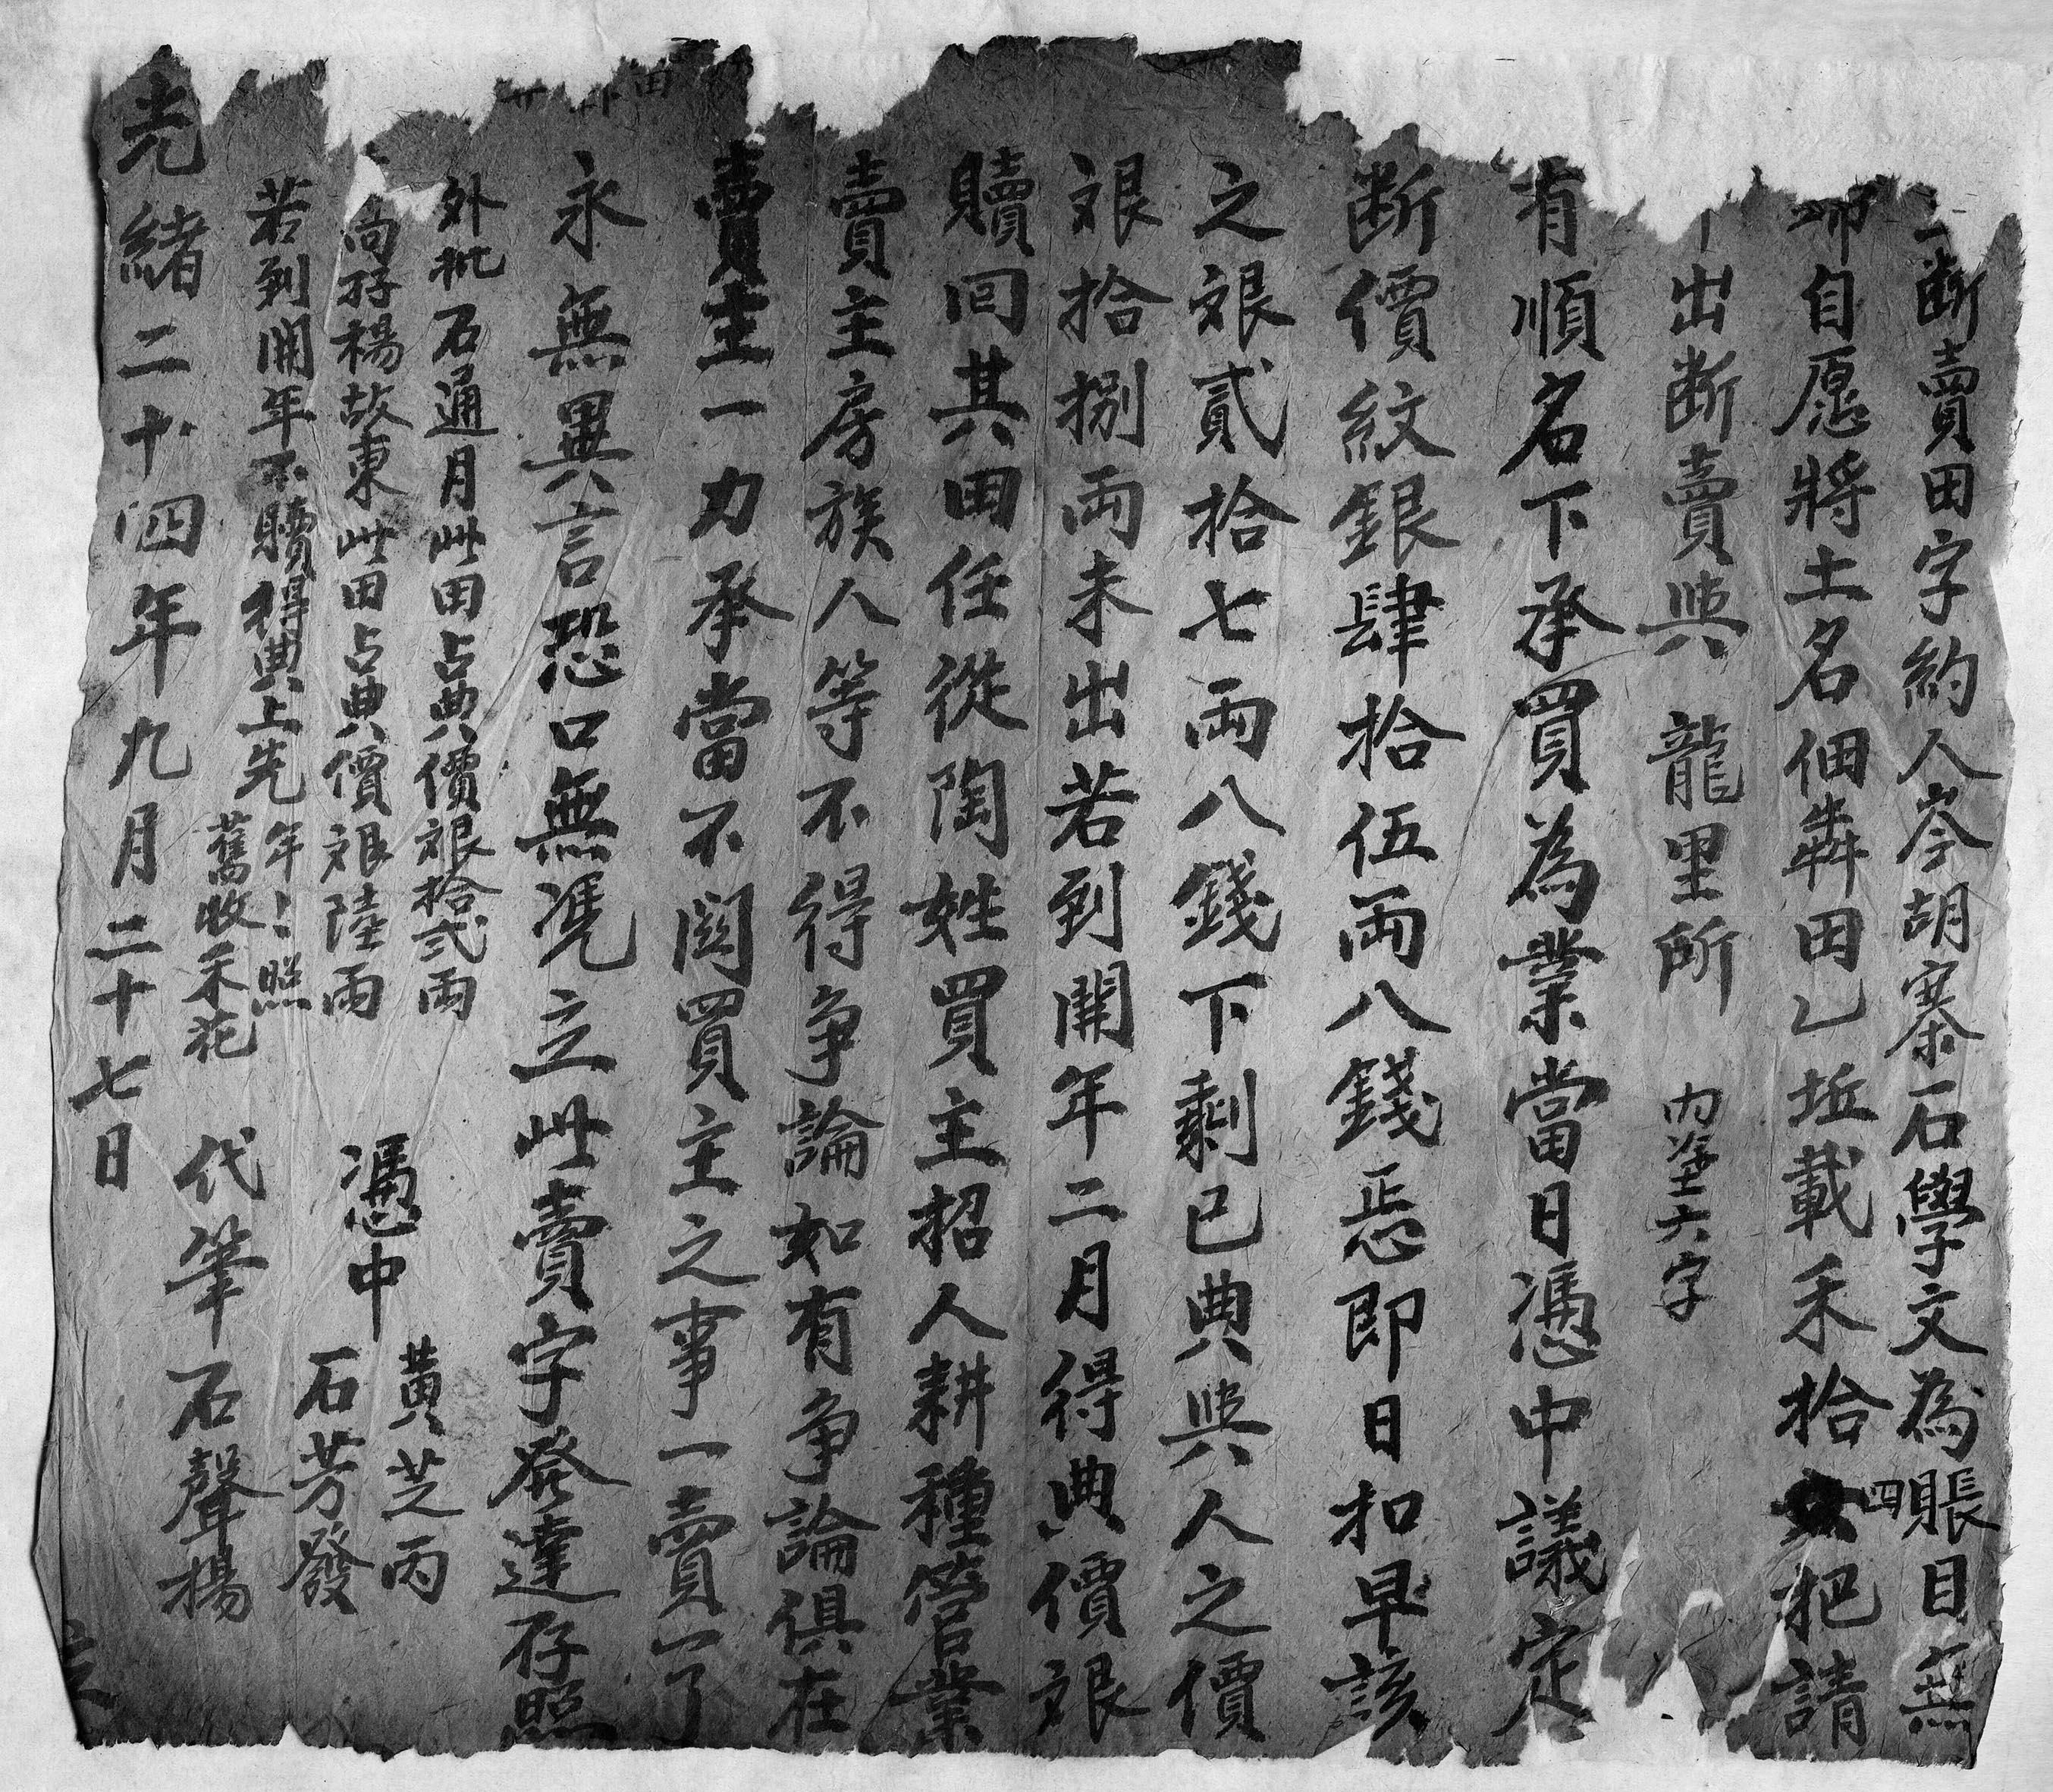 立断賣田字約人岑胡寨石學文為賬目無
自愿將土名佃犇田乚坵載禾拾四把請
中出断賣與龍里所 内塗六字
有順名下承買為業當日憑中議定
断價紋銀肆拾伍両八錢㤫即日扣早該
之艰貳拾七両八錢下剩已典與人之價
艰拾捌両未出若到開年二月得典價艰
贖囘其田任從陶姓買主招人耕種管業
賣主房族人等不得争論如有争論俱在
賣主一力承當不関買主之事一賣一了
永無異言恐口無凴立此賣字發達存照
外批石通月此田占典價艰拾弍両
尚孖楊故東此田占典價艰陸両
若到開年不贖得典上先年〻照
舊收禾花
憑中 黃芝丙
石芳發
代筆石聲揚
光緒二十四年九月二十七日 立